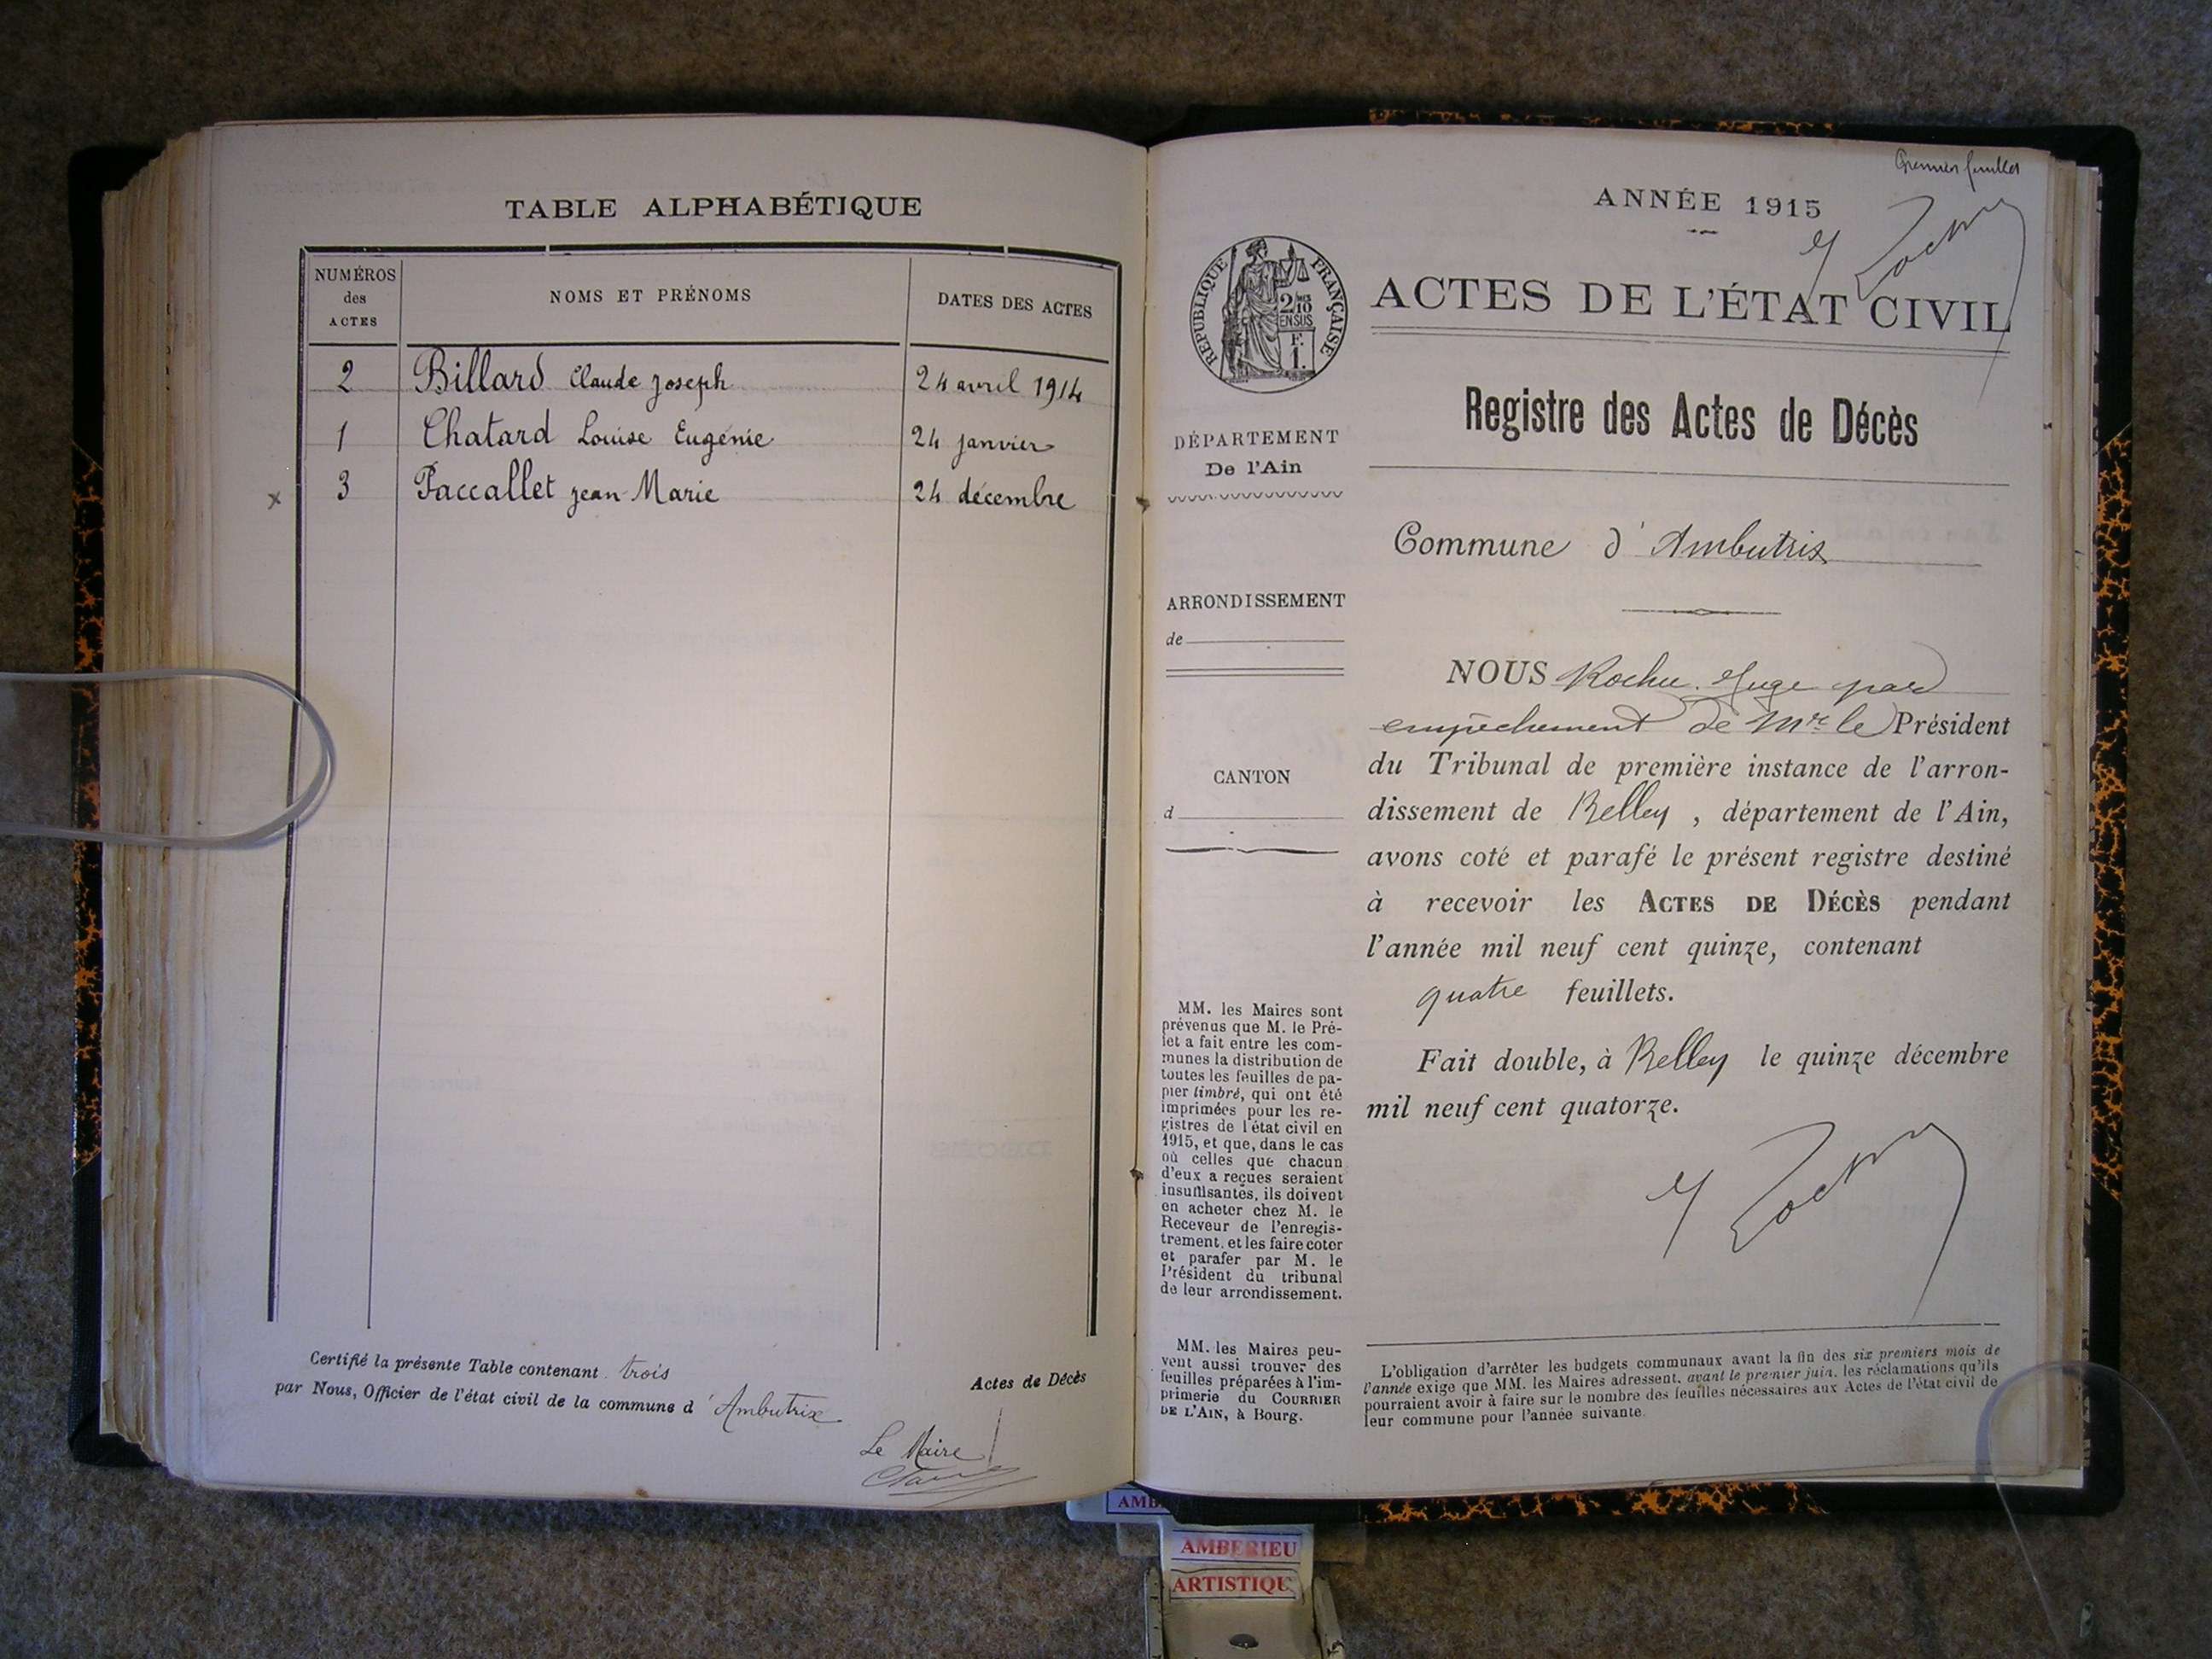 TABLE ALPHABÉTIQUE
NUMÉROS
des
ACTES
NOMS ET PRÉNOMS
DATES DES ACTES
2 Billard Claude Joseph 24 avril 1914
1 Chatard Louise Eugénie 24 janvier
x 3 Paccallet Jean Marie 24 décembre
Certifié la présente Table contenant trois Actes de Décès
par Nous, Officier de l'état civil de la commune d'Ambutrix
Le Maire
Premier feuillet
ANNÉE 1915
RÉPUBLIQUE FRANÇAISE
2/10
EN SUS
F.
1.
ACTES DE L'ÉTAT CIVIL
Registre des Actes de Décès
DÉPARTEMENT
De l'Ain
Commune d'Ambutrix
ARRONDISSEMENT
de
CANTON
d
NOUS Rochu Juge par
empêchement de Mr le Président
du Tribunal de première instance de l'arron-
dissement de Belley, département de l'Ain,
avons coté et parafé le présent registre destiné
à recevoir les ACTES DE DÉCÈS pendant
l'année mil neuf cent quinze, contenant
quatre feuillets.
Fait double, à Belley le quinze décembre
mil neuf cent quatorze.
MM. les Maires sont
prévenus que M. le Pré-
fet a fait entre les com-
munes la distribution de
toutes les feuilles de pa-
pier timbré, qui ont été
imprimées pour les re-
gistres de l'état civil en
1915, et que, dans le cas
où celles que chacun
d'eux a reçues seraient
insuffisantes, ils doivent
en acheter chez M. le
Receveur de l'enregis-
trement, et les faire coter
et parafer par M. le
Président du tribunal
de leur arrondissement.
MM. les Maires peu-
vent aussi trouver des
feuilles préparées à l'im-
primerie du COURRIER
DE L'AIN, à Bourg.
L'obligation d'arrêter les budgets communaux avant la fin des six premiers mois de
l'année exige que MM. les Maires adressent, avant le premier juin, les réclamations qu'ils
pourraient avoir à faire sur le nombre des feuilles nécessaires aux Actes de l'état civil de
leur commune pour l'année suivante.
AMB
AMBERIEU
ARTISTIQU